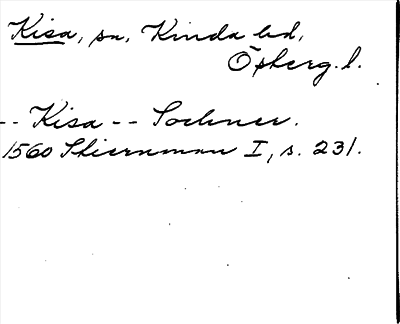 Kisa, sn, Kinda hd,
Östberg. l.
-- Kisa -- Sochner.
1560 Stiernman I, s. 231.